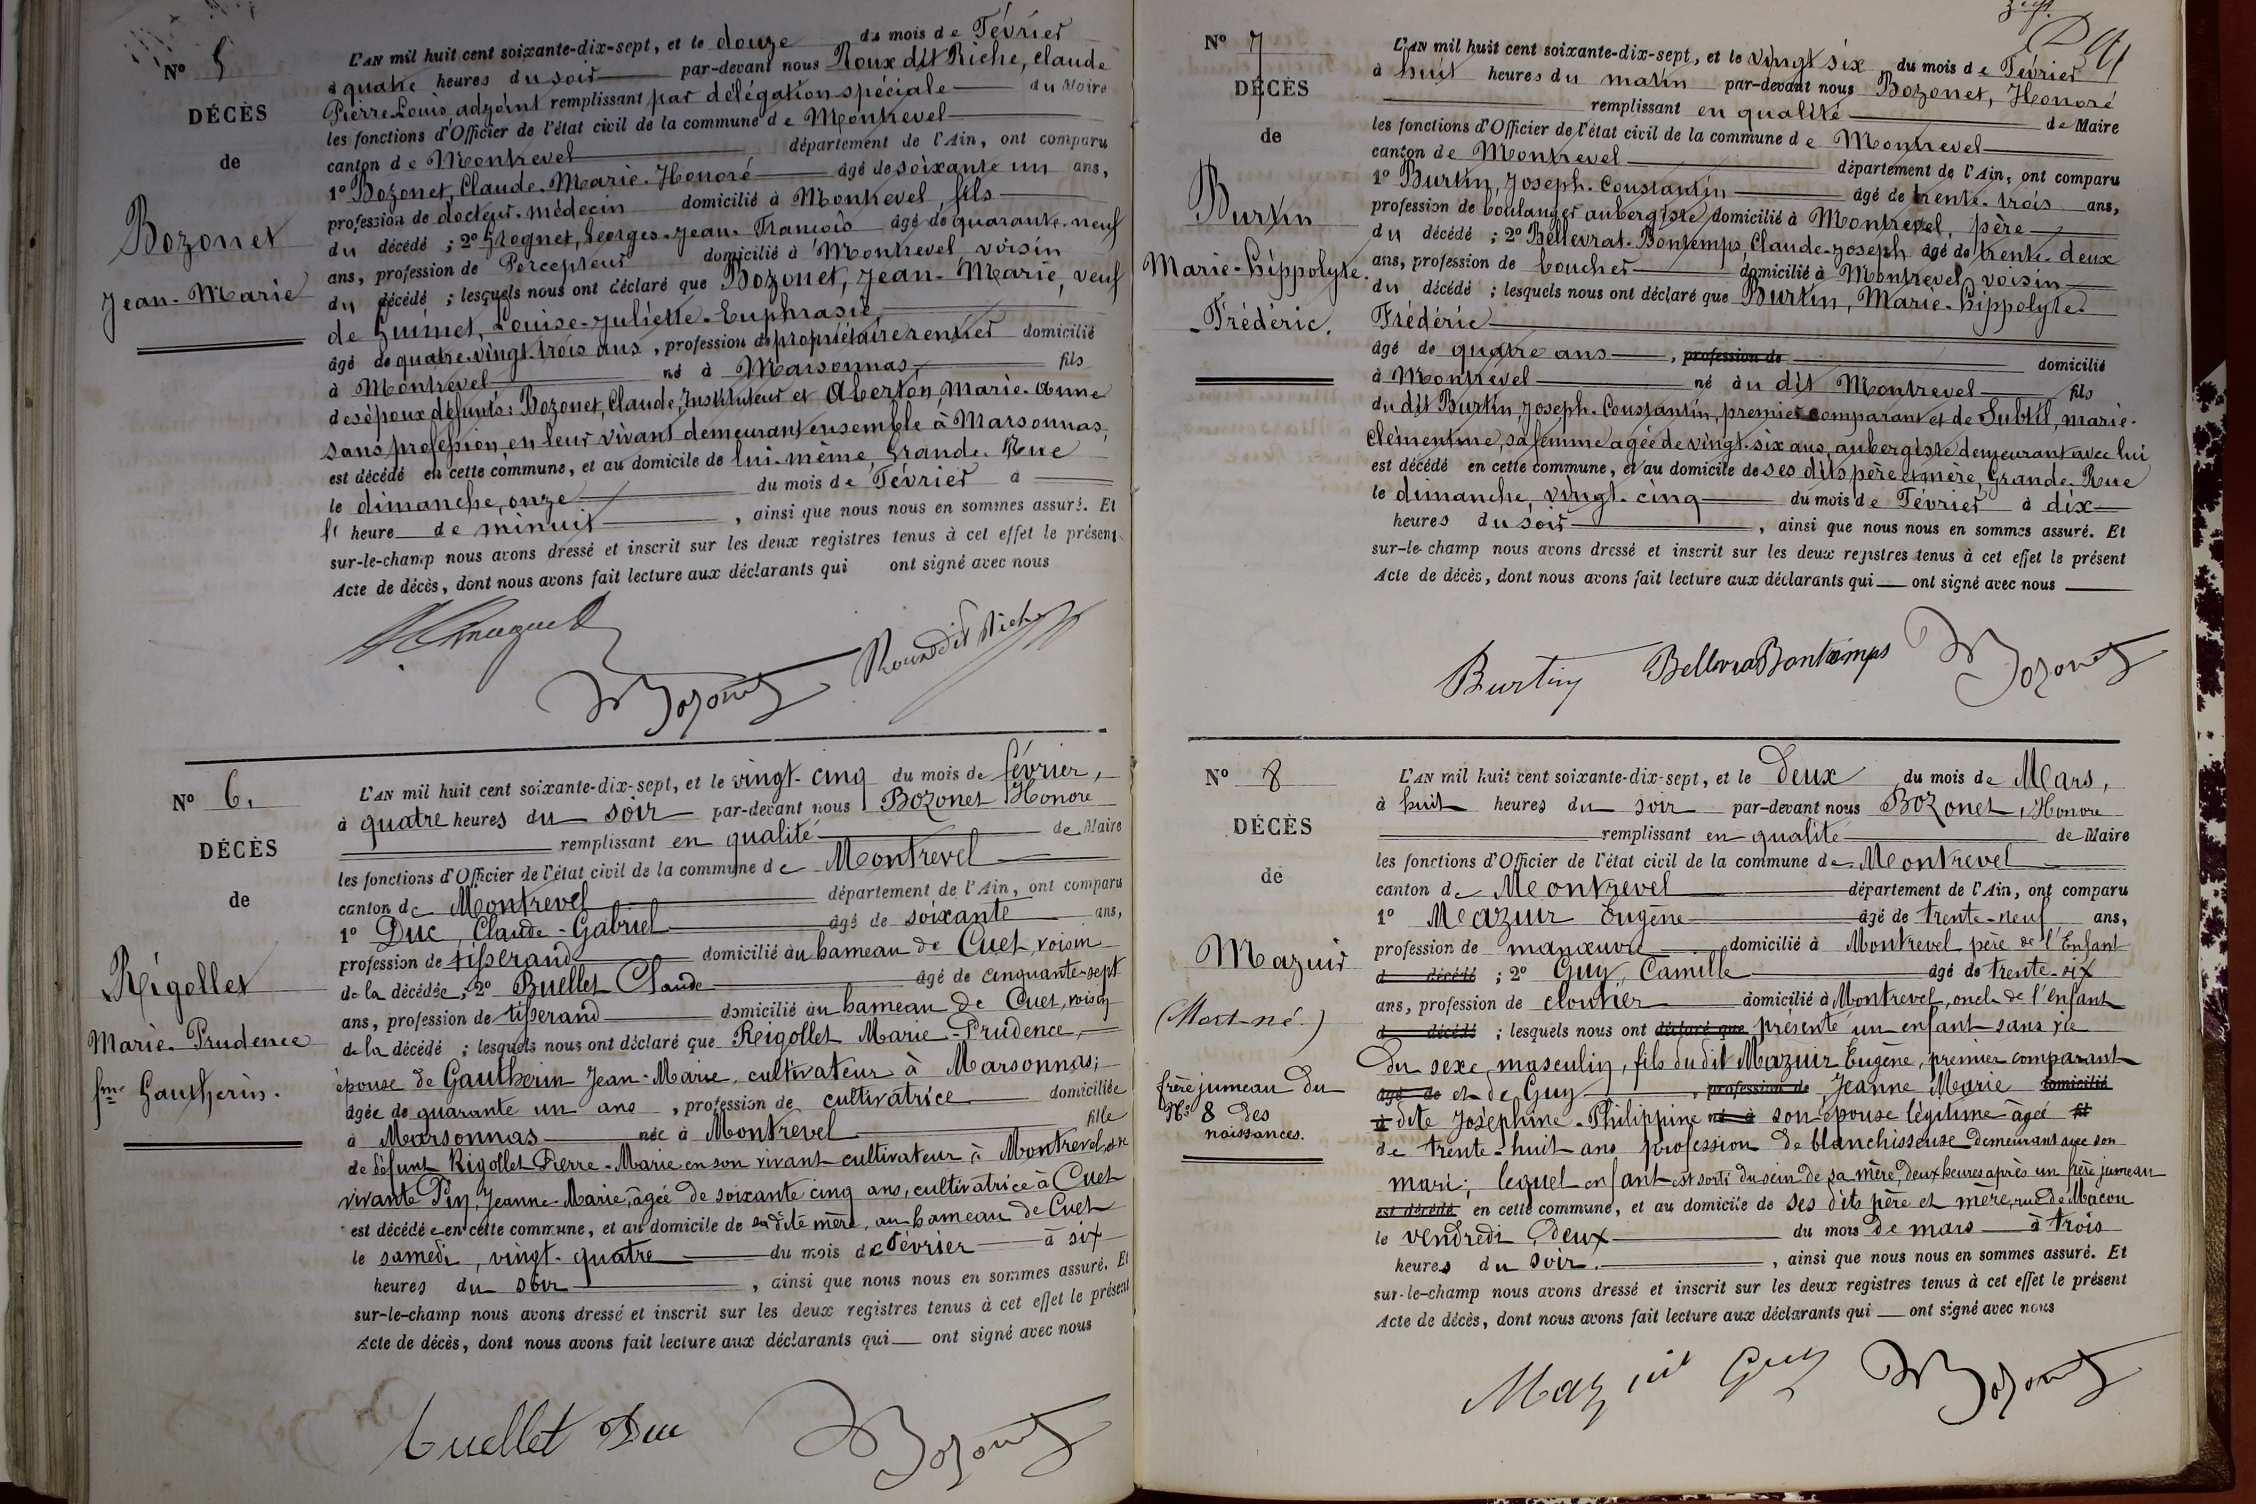 Nº 5
DÉCÈS
de
Bozonet
Jean-Marie
L'AN mil huit cent soixante-dix-sept, et le douze du mois de Février
à quatre heures du soir par-devant nous Roux dit Riche, Claude
Pierre Louis, adjoint remplissant par délégation spéciale du Maire
les fonctions d'Officier de l'état civil de la commune de Montrevel
canton de Montrevel département de l'Ain, ont comparu
1º Bozonet, Claude-Marie-Honoré âgé de soixante un ans,
profession de docteur-médecin domicilié à Montrevel, fils
du décédé ; 2º Georges-Jean-François âgé de quarante-neuf
ans, profession de Percepteur domicilié à Montrevel, voisin
du décédé ; lesquels nous ont déclaré que Bozonet, Jean-Marie, veuf
de Guimet, Louise-Juliette-Euphrasie,
âgé de quatre-vingt-trois ans, profession de propriétaire rentier domicilié
à Montrevel né à Marsonnas, fils
des époux défunts : Bozonet, Claude, Instituteur et Aberton, Marie-Anne
sans profession, en leur vivant demeurant ensemble à Marsonnas,
est décédé en cette commune, et au domicile de lui-même, Grande-Rue
le dimanche, onze du mois de Février à
l' heure de minuit, ainsi que nous nous en sommes assuré. Et
sur-le-champ nous avons dressé et inscrit sur les deux registres tenus à cet effet le présent
Acte de décès, dont nous avons fait lecture aux déclarants qui ont signé avec nous
Bozonet Roux dit Riche
Nº 6.
DÉCÈS
de
Rigollet
Marie-Prudence
fme Gautherin.
L'AN mil huit cent soixante-dix-sept, et le vingt-cinq du mois de février,
à quatre heures du soir par-devant nous Bozonet Honoré
remplissant en qualité de Maire
les fonctions d'Officier de l'état civil de la commune de Montrevel
canton de Montrevel département de l'Ain, ont comparu
1º Duc, Claude-Gabriel âgé de soixante ans,
profession de tisserand domicilié au hameau de Cuet, voisin
de la décédée ; 2º Buellet Claude âgé de cinquante-sept
ans, profession de tisserand domicilié au hameau de Cuet, voisin
de la décédé ; lesquels nous ont déclaré que Reigollet Marie-Prudence,
épouse de Gautherin Jean-Marie, cultivateur à Marsonnas;
âgée de quarante un ans, profession de cultivatrice domiciliée
à Marsonnas née à Montrevel fille
de défunt Rigollet Pierre-Marie en son vivant cultivateur à Montrevel, et de
vivante Pin, Jeanne-Marie, âgée de soixante cinq ans, cultivatrice à Cuet
est décédée en cette commune, et au domicile de sa dite mère, au hameau de Cuet
le samedi, vingt-quatre du mois de Février à six
heures du soir, ainsi que nous nous en sommes assuré. Et
sur-le-champ nous avons dressé et inscrit sur les deux registres tenus à cet effet le présent
Acte de décès, dont nous avons fait lecture aux déclarants qui ont signé avec nous
Buellet Duc Bozonet
Nº 7
DÉCÈS
de
Burtin
Marie-hippolyte.
-Frédéric.
L'AN mil huit cent soixante-dix-sept, et le vingt six du mois de Février
à huit heures du matin par-devant nous Bozonet, Honoré
remplissant en qualité de Maire
les fonctions d'Officier de l'état civil de la commune de Montrevel
canton de Montrevel département de l'Ain, ont comparu
1º Burtin, Joseph-Constantin âgé de trente-trois ans,
profession de boulanger aubergiste domicilié à Montrevel, père
du décédé ; 2º Bellevrat-Bontemps, Claude-Joseph âgé de trente-deux
ans, profession de boucher domicilié à Montrevel, voisin
du décédé ; lesquels nous ont déclaré que Burtin, Marie-hippolyte-
Frédéric
âgé de quatre ans, profession de domicilié
à Montrevel né au dit Montrevel fils
du dit Burtin, Joseph-Constantin, premier comparant et de Subtil, marie-
clémentine, sa femme agée de vingt-six ans, aubergiste demeurant avec lui
est décédé en cette commune, et au domicile de ses dits père et mère, Grande-Rue
le dimanche, vingt-cinq du mois de Février à dix
heures du soir, ainsi que nous nous en sommes assuré. Et
sur-le-champ nous avons dressé et inscrit sur les deux registres tenus à cet effet le présent
Acte de décès, dont nous avons fait lecture aux déclarants qui ont signé avec nous
Burtin Bellevra Bontemps Bozonet
Nº 8
DÉCÈS
de
Mazuir
(Mort-né.)
frère jumeau du
Nº 8 des
naissances.
L'AN mil huit cent soixante-dix-sept, et le Deux du mois de Mars,
à huit heures du soir par-devant nous Bozonet, Honoré
remplissant en qualité de Maire
les fonctions d'Officier de l'état civil de la commune de Montrevel
canton de Montrevel département de l'Ain, ont comparu
1º Mazuir Eugène âgé de trente-neuf ans,
profession de manœuvre domicilié à Montrevel père de l'Enfant
d décédé ; 2º Guy, Camille âgé de trente-six
ans, profession de cloutier domicilié à Montrevel, oncle de l'enfant
d décédé ; lesquels nous ont déclaré que présenté un enfant sans vie
Du sexe masculin, fils du dit Mazuir Eugène, premier comparant
âgé de et de Guy, profession de Jeanne Marie domicilié
à dite Joséphine-Philippine né à son épouse légitime âgée fil
de trente-huit ans profession de blanchisseuse demeurant avec son
mari; lequel enfant est sorti du sein de sa mère, deux heures après un frère jumeau
est décédé en cette commune, et au domicile de ses dits père et mère, rue de Macon
le vendredi deux du mois de mars à trois
heures du soir., ainsi que nous nous en sommes assuré. Et
sur-le-champ nous avons dressé et inscrit sur les deux registres tenus à cet effet le présent
Acte de décès, dont nous avons fait lecture aux déclarants qui ont signé avec nous
Mazuir Guy Bozonet